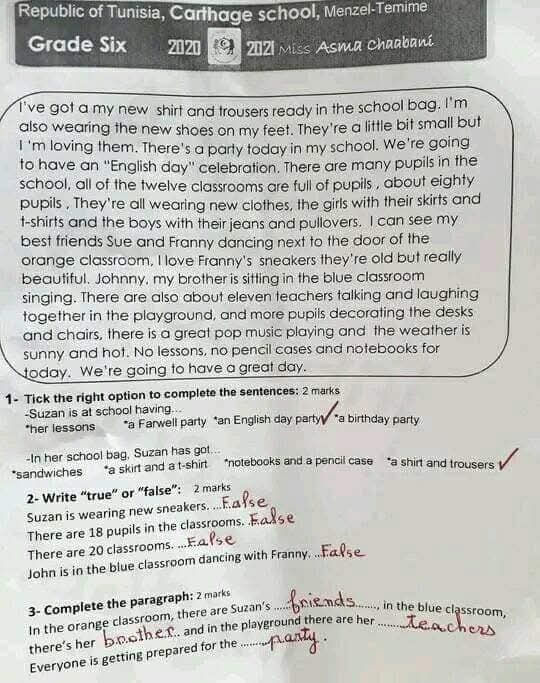 Republic of Tunisia, Carthage school, Menzel-Temime
Grade Six 2020 2021 Miss Asma Chaabani
I've got a my new shirt and trousers ready in the school bag. I'm
also wearing the new shoes on my feet. They're a little bit small but
I 'm loving them. There's a party today in my school. We're going
to have an "English day" celebration. There are many pupils in the
school, all of the twelve classrooms are full of pupils , about eighty
pupils , They're all wearing new clothes, the girls with their skirts and
t-shirts and the boys with their jeans and pullovers. I can see my
best friends Sue and Franny dancing next to the door of the
orange classroom, I love Franny's sneakers they're old but really
beautiful. Johnny, my brother is sitting in the blue classroom
singing. There are also about eleven teachers talking and laughing
together in the playground, and more pupils decorating the desks
and chairs, there is a great pop music playing and the weather is
sunny and hot. No lessons, no pencil cases and notebooks for
today. We're going to have a great day.
1- Tick the right option to complete the sentences: 2 marks
-Suzan is at school having...
*her lessons *a Farwell party *an English day party✓ *a birthday party
-In her school bag, Suzan has got...
*sandwiches *a skirt and a t-shirt *notebooks and a pencil case *a shirt and trousers ✓
2- Write "true" or "false": 2 marks
Suzan is wearing new sneakers. ...False
There are 18 pupils in the classrooms. False
There are 20 classrooms. ...False
John is in the blue classroom dancing with Franny. ...False
3- Complete the paragraph: 2 marks
In the orange classroom, there are Suzan's .....friends......., in the blue classroom,
there's her brother.. and in the playground there are her .......teachers
Everyone is getting prepared for the .........party.